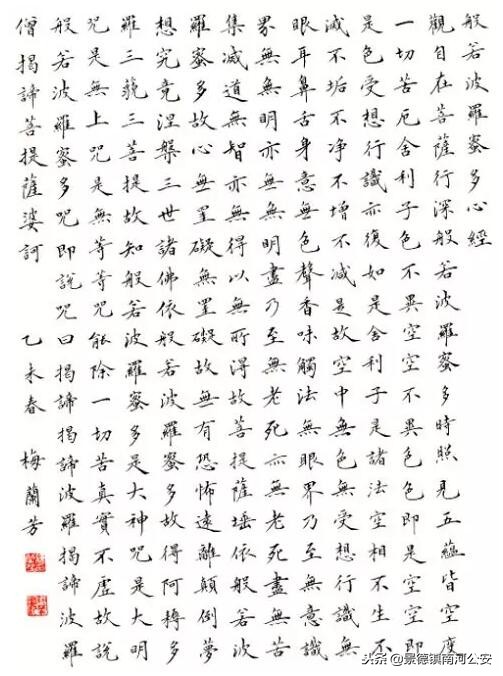 般若波羅蜜多心經
觀自在菩薩行深般若波羅蜜多時照見五蘊皆空度
一切苦厄舍利子色不異空空不異色色即是空空即
是色受想行識亦復如是舍利子是諸法空相不生不
滅不垢不净不增不减是故空中無色無受想行識無
眼耳鼻舌身意無色聲香味觸法無眼界乃至無意識
界無無明亦無無明盡乃至無老死亦無老死盡無苦
集滅道無智亦無得以無所得故菩提薩埵依般若波
羅蜜多故心無罣礙無罣礙故無有恐怖遠離顛倒夢
想究竟涅槃三世諸佛依般若波羅蜜多故得阿耨多
羅三藐三菩提故知般若波羅蜜多是大神咒是大明
咒是無上咒是無等等咒能除一切苦真實不虛故說
般若波羅蜜多咒即說咒曰揭諦揭諦波羅揭諦波羅
僧揭諦菩提薩婆訶 乙未春 梅蘭芳
头条@景德镇南河公安